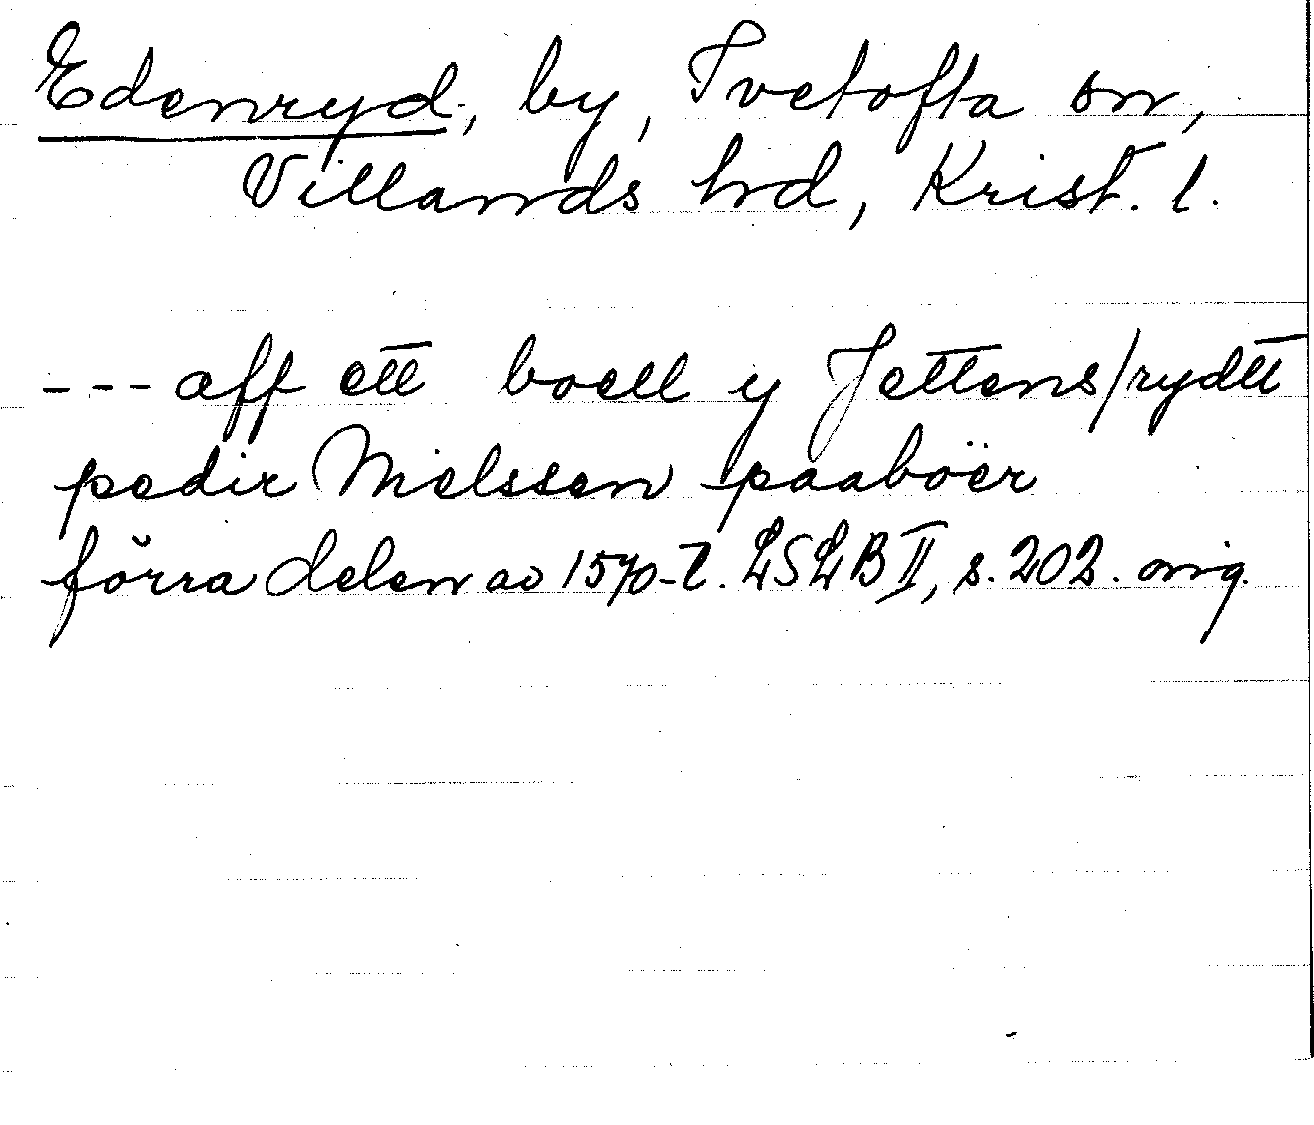 Edenryd, by, Ivetofta sn,
Villands hd, Krist. l.
--- aff ett boell y Jettens/rydtt
pedir Nielssen paaböer
förra delen av 1570-t. LSLB II, s. 202. orig.